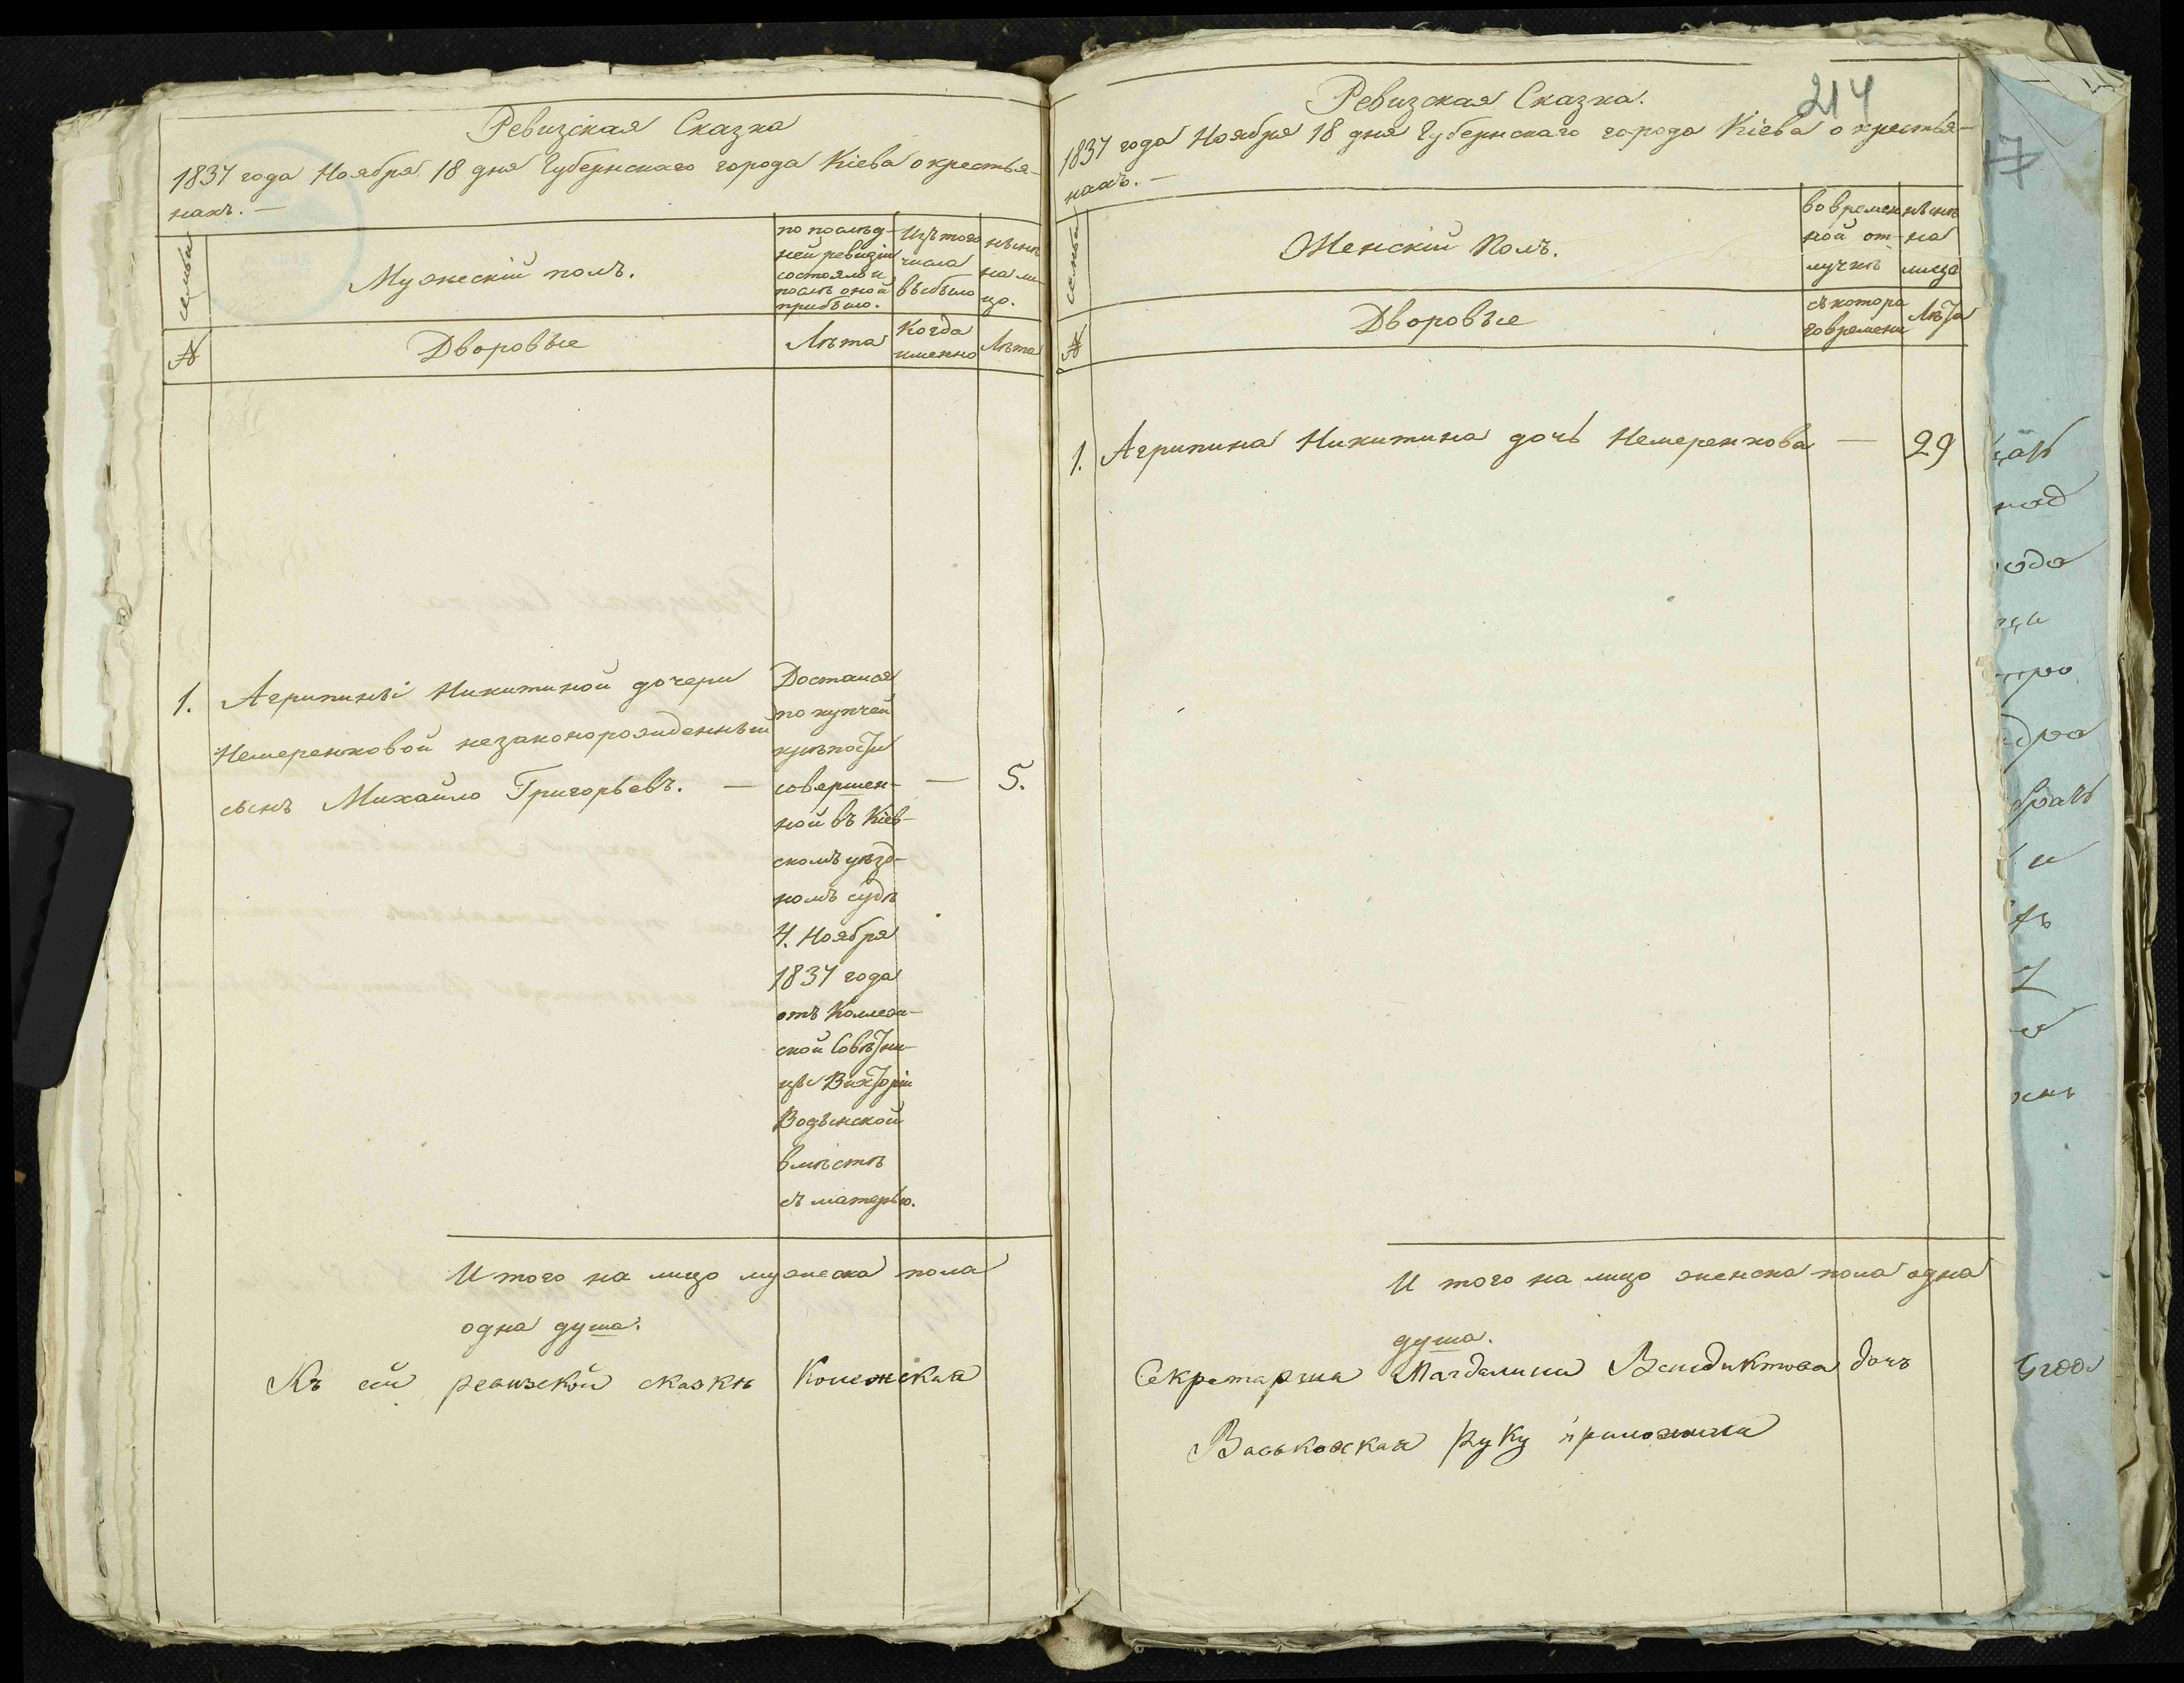 Ревизская Сказка
1837 года Ноября 18 дня Губернскаго города Кіева о крестья-
нахъ. —
семьи
Мужескій полъ.
по послѣд-
ней ревизіи
состояло и
послѣ оной
прибыло.
Изъ того
числа
выбыло
нынѣ
на ли-
цо.
№
Дворовые
Лѣта
Когда
именно
Лѣта
1. Агрипины Никитиной дочери
Немеренковой незаконорожденный
сынъ Михайло Григорьевъ. —
Достался
по купчей
крѣпости
совершен-
ной въ Кіев-
скомъ уѣзд-
номъ судѣ
4. Ноября
1837 года
отъ Коллеж-
ской Совѣтни-
цы Викторіи
Водынской
вмѣстѣ
съ матерью.
— 5.
И того на лицо мужеска пола
одна душа.
Къ сей ревизской сказкѣ
214
Ревизская Сказка.
1837 года Ноября 18 дня Губернскаго города Кіева о крестья-
нахъ. —
семьи
Женскій Полъ.
во времен-
ной от-
лучкѣ
нынѣ
на
лицо
№
Дворовые
съ котора
го времени
Лѣта
1. Агрипина Никитина дочь Немеренкова — 29
И того на лицо женска пола одна
душа.
Секретарша Магдалина Венедиктова дочь
Васьковская руку приложила
17